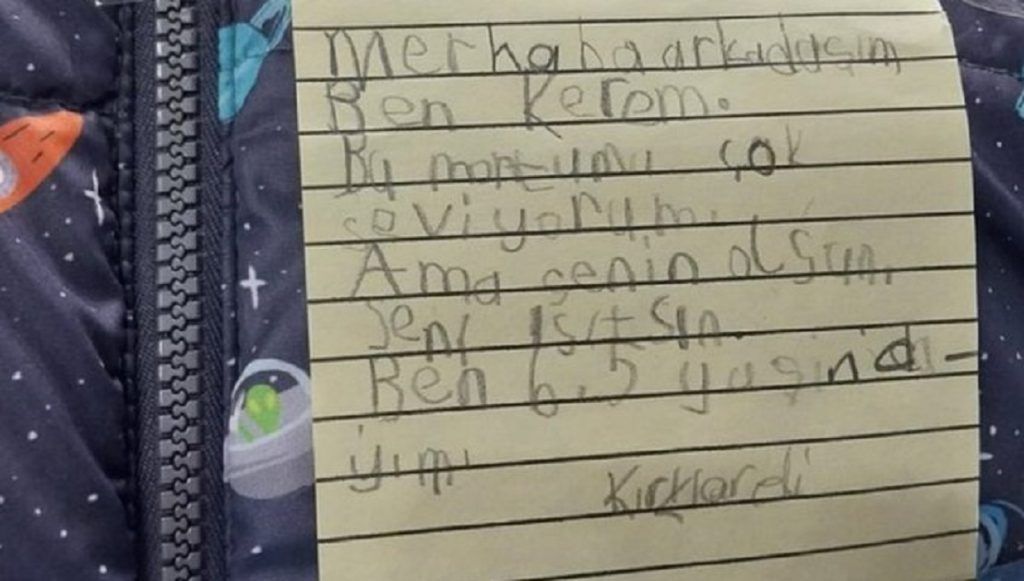 Merhaba arkadaşım
Ben Kerem.
Bu montumu çok
seviyorum.
Ama senin olsun.
Seni ısıtsın.
Ben 6.5 yaşında-
yım.
Kırklareli